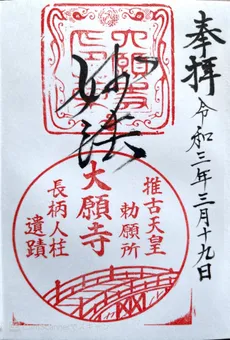 奉拝
令和三年三月十九日
妙法
推古天皇
勅願所
大願寺
長柄人柱
遺蹟